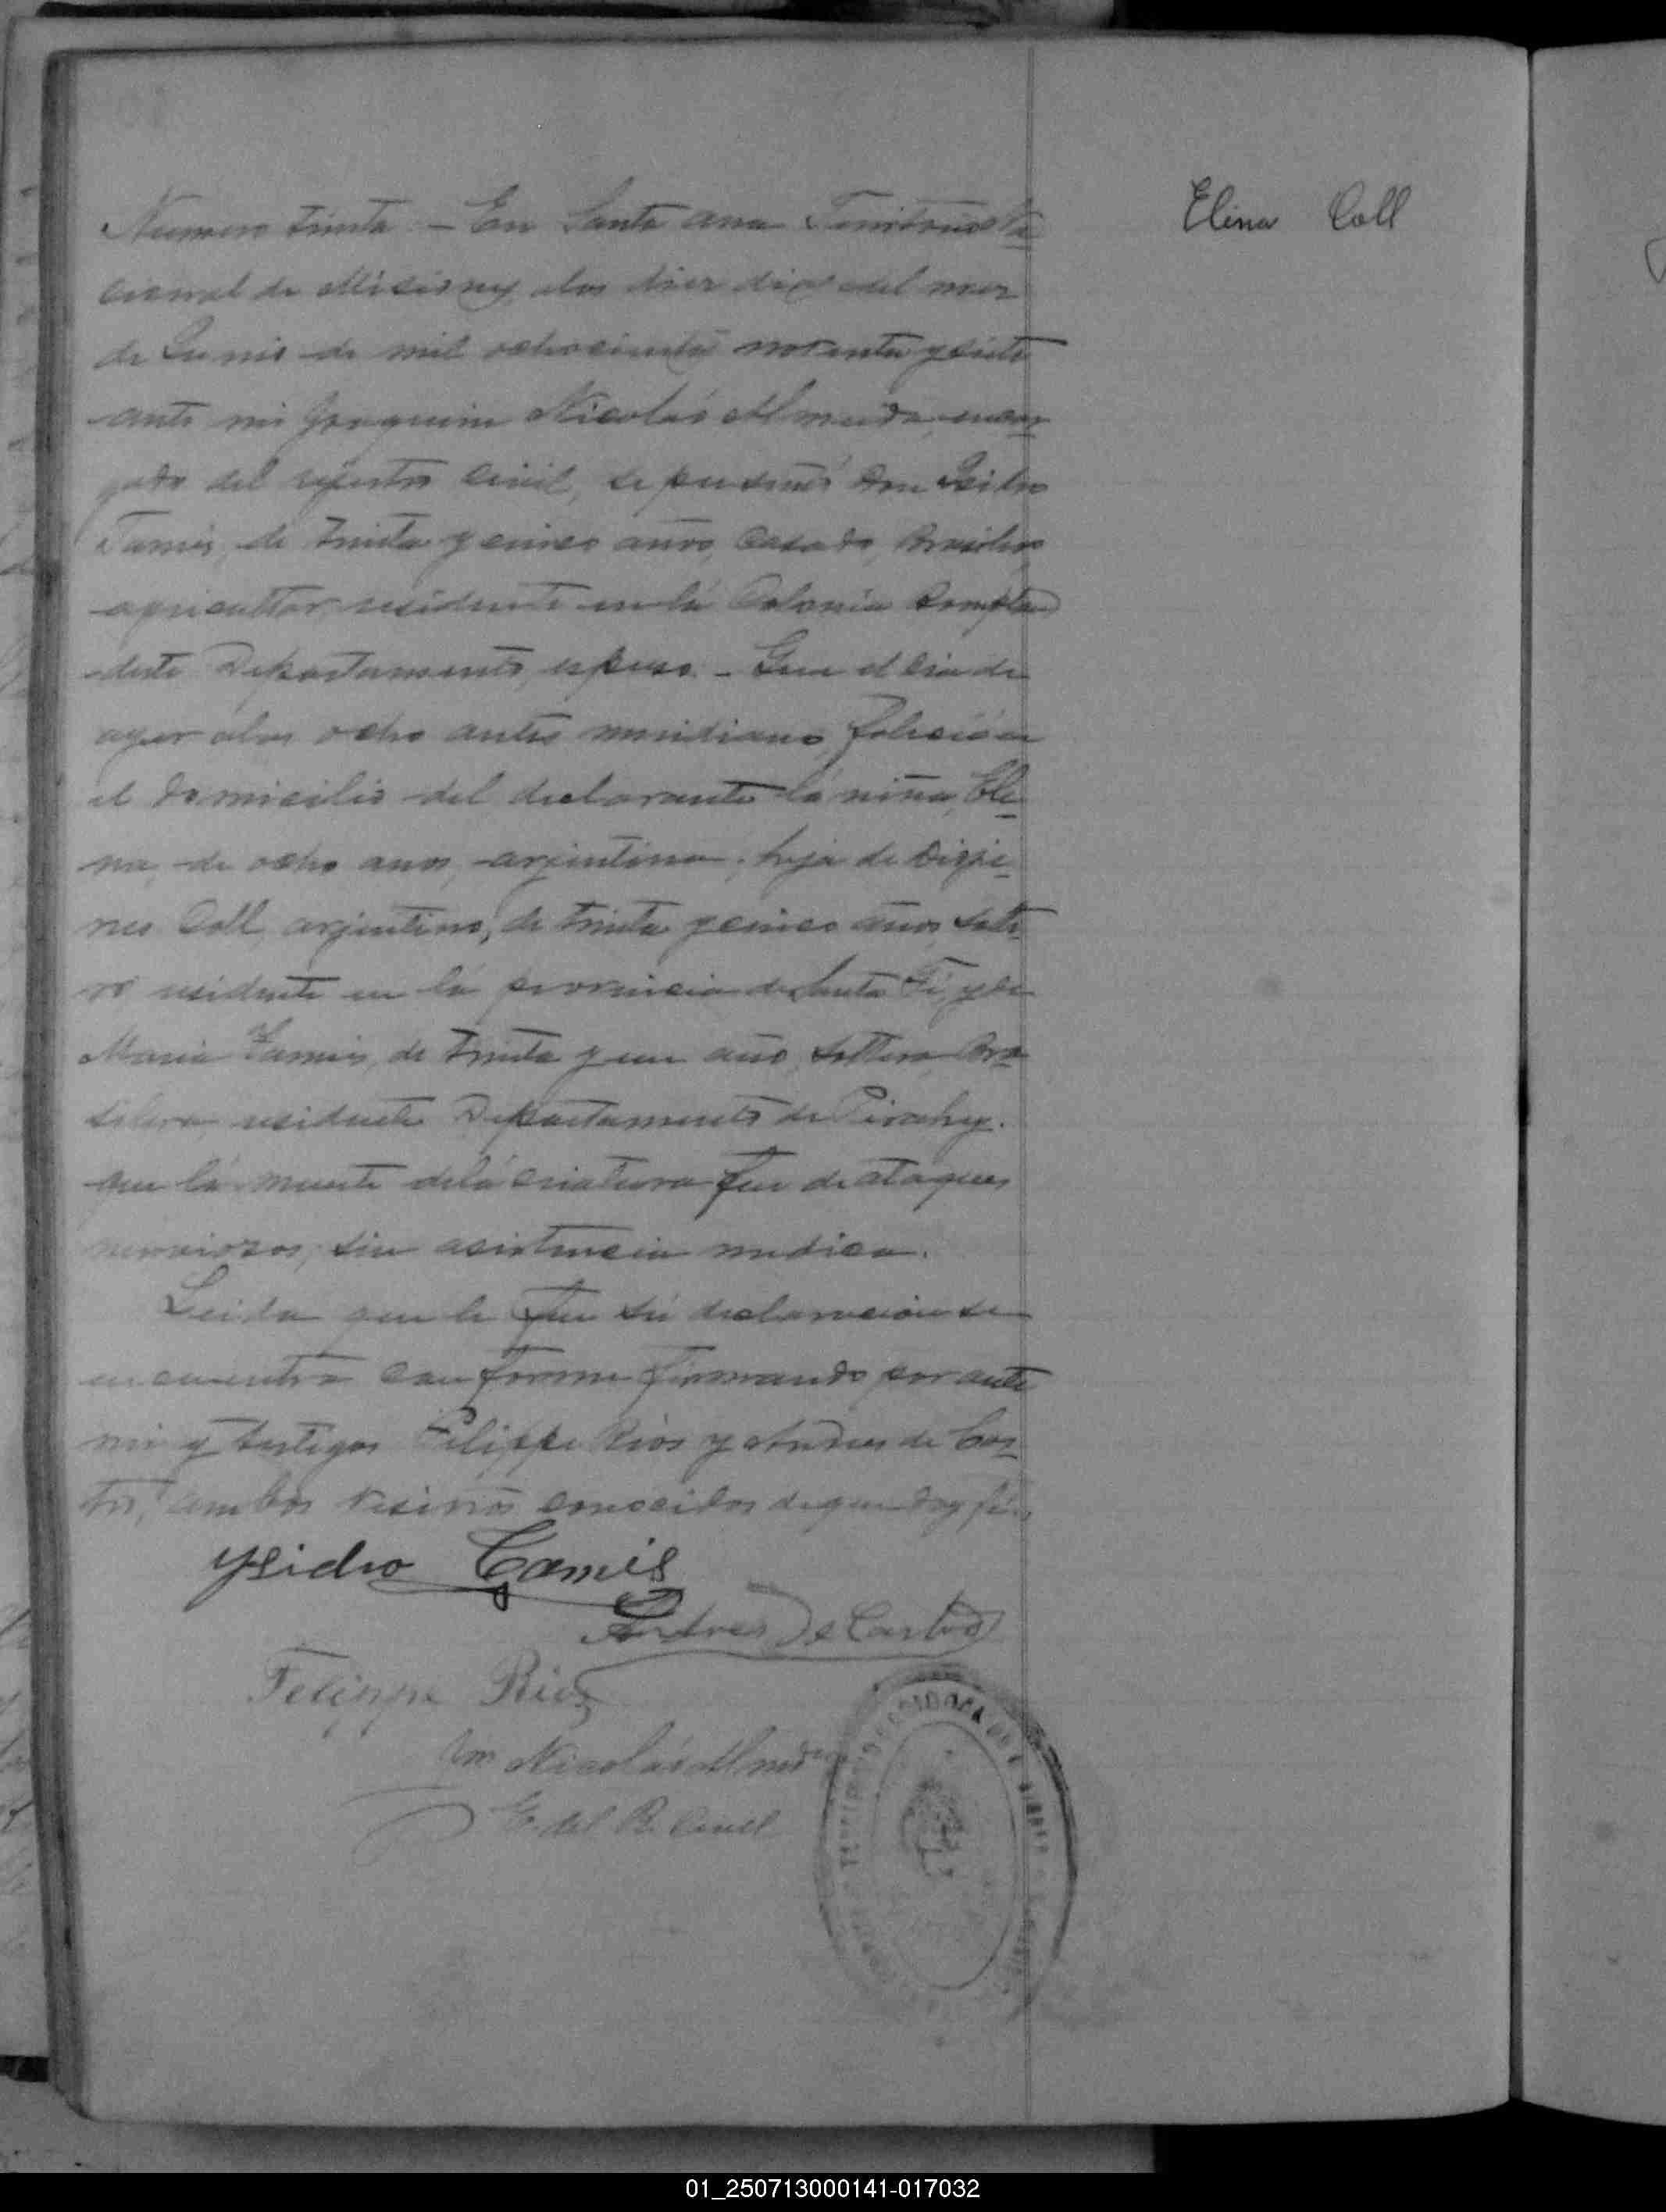 Elina Coll
Numero trinta - En Santa ana Territorio Na
cional de Misiones alos diez dias del mes
de Junio de mil ochocientos noventa y siete
ante mi Joaquin Nicolás Almeida, encar
gado del rejistro Civil, se presentó Don Isidro
Tamis, de trinta y cinco años, Casado, Brasilero,
agricultor, residente en lá Colonia
deste Departamento, espuso. - Que el dia de
ayer alas ocho antes meridiano falició en
el domicilio del declarante lá niña, Ele
na, de ocho anos, arjentina, hija de
Coll, arjentino, de trinta y cinco años, solte
ro residente en lá provincia de Santa Fé, y de
Maria Tamis, de trinta y un año, soltera, Bra
silera, residente Departamento de Pirahy.
que lá muerte delá criatura fue de ataques
nerviozos, sin asistencia medica.
Leida que le fue sú declaracion se
encuentra conforme firmando por ante
mi y testigos Felippe Rios y Andres de Cas
tro, ambos vesinos conocidos de que doy fé.
Ysidro Tamis
Andres de Castro
Felippe Rios
Nicolás Almeida
E. del R. Civil
01_250713000141-017032